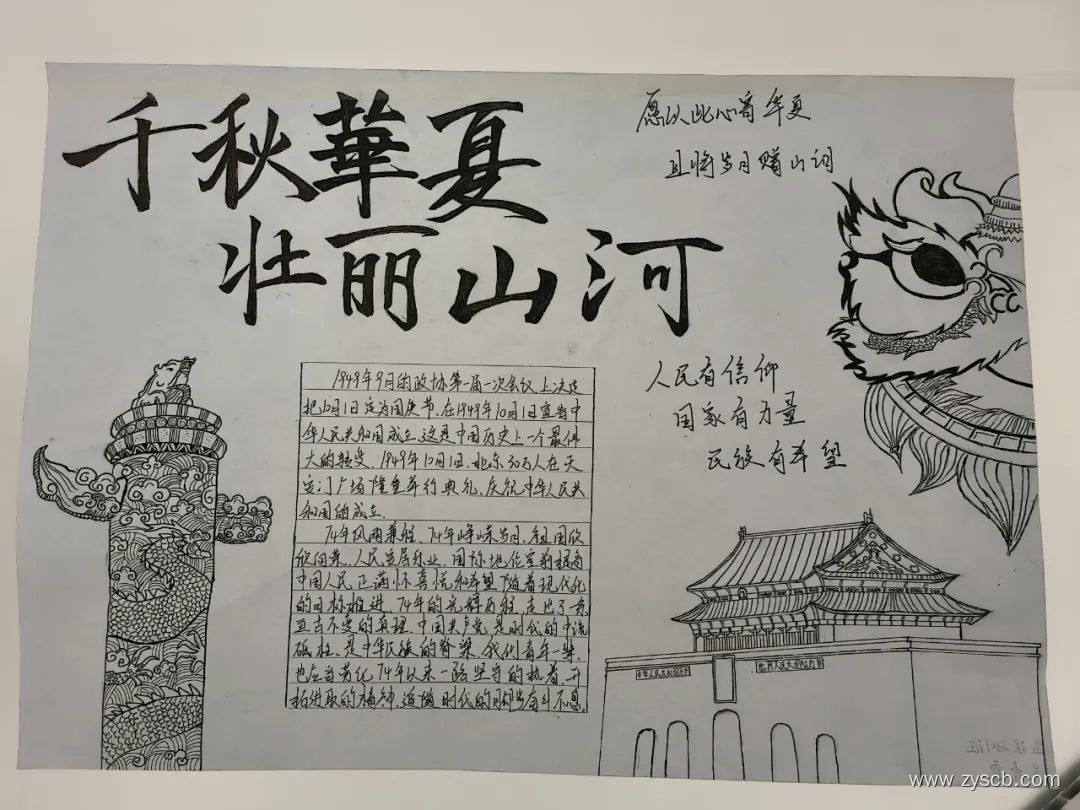 千秋華夏
壮丽山河
愿以此心寄华夏
且将岁月赠山河
人民有信仰
国家有力量
民族有希望
1949年9月的政协第一届一次会议上决定
把10月1日定为国庆节.在1949年10月1日宣告中
华人民共和国成立.这是中国历史上一个最伟
大的转变.1949年10月1日.北京30万人在天
安门广场隆重举行典礼.庆祝中华人民共
和国的成立.
74年风雨兼程.74年峥嵘岁月.祖国欣
欣向荣.人民安居乐业.国际地位空前提高
中国人民正满怀喜悦和希望随着现代化
的目标推进.74年的光辉历程.走出了亲
亘古不变的真理.中国共产党是时代的中流
砥柱.是中华民族的脊梁.我们青年一辈.
也应当劳记74年以来一路坚守的执着.开
拓进取的精神.追随时代的脚步奋斗不息
中华人民共和国万岁
世界人民大团结万岁
www.zyscb.com